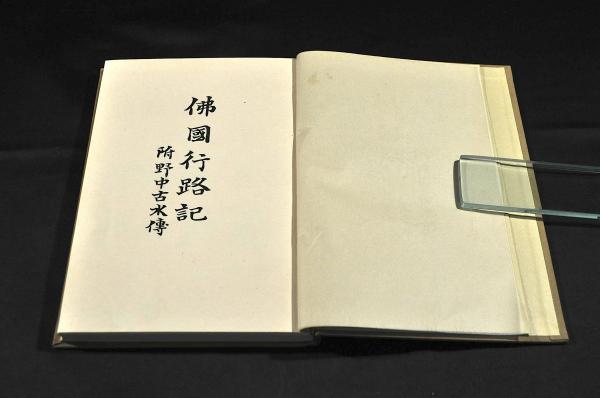 佛國行路記
附野中古水傳